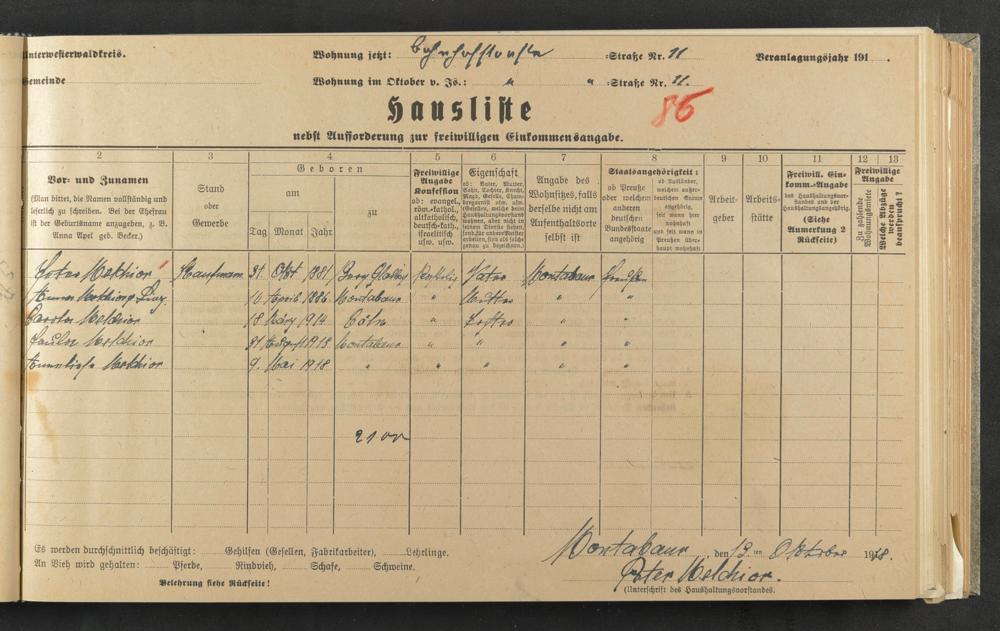 Unterwesterwaldkreis. Wohnung jetzt: Bahnhofstraße =Straße Nr. 11 Veranlagungsjahr 191 .
Gemeinde Wohnung im Oktober v. Js.: " " =Straße Nr. 11.
Hausliste 86
nebst Aufforderung zur freiwilligen Einkommensangabe.
2 3 4 5 6 7 8 9 10 11 12 13
Vor- und Zunamen
(Man bittet, die Namen vollständig und
leserlich zu schreiben. Bei der Ehefrau
ist der Geburtsname anzugeben, z. B.
Anna Apel geb. Becker.)
Stand
oder
Gewerbe
Geboren
am zu
Tag Monat Jahr
Freiwillige
Angabe
Konfession
ob: evangel.,
röm.-kathol.,
altkatholisch,
deutsch-kath.,
israelitisch
usw. usw.
Eigenschaft
ob: Vater, Mutter,
Sohn, Tochter, Knecht,
Magd, Geselle, Cham-
bregarnist usw. usw.
Angabe des
Wohnsitzes, falls
derselbe nicht am
Aufenthaltsorte
selbst ist
Staatsangehörigkeit:
ob Preuße
oder welchem
anderen
deutschen
Bundesstaate
angehörig
ob Ausländer,
welchem außer-
deutschen Staate
angehörig,
seit wann hier
wohnhaft
und seit wann in
Preußen über-
haupt wohnhaft
Arbeit-
geber
Arbeits-
stätte
Freiwill. Ein-
komm.-Angabe
des Haushaltungsvor-
standes und der
Haushaltungsangehörig.
(Siehe
Anmerkung 2
Rückseite)
Freiwillige
Angabe
Zu zahlende
Wohnungsmiete
Welche Abzüge
werden
beansprucht?
Peter Melchior Kaufmann 31 Okt 1881 Vater Montabaur Preußen
Anna Melchior 10 April 1886 Montabaur " Mutter " "
Melchior 18 März 1914 Cöln " Tochter " "
Paula Melchior 31 1915 Montabaur " " " "
Anneliese Melchior 9. Mai 1918 " " " " "
2100
Es werden durchschnittlich beschäftigt: Gehilfen (Gesellen, Fabrikarbeiter), Lehrlinge.
An Vieh wird gehalten: Pferde, Rindvieh, Schafe, Schweine.
Belehrung siehe Rückseite!
Montabaur, den 19. ten Oktober 1918.
Peter Melchior.
(Unterschrift des Haushaltungsvorstandes.